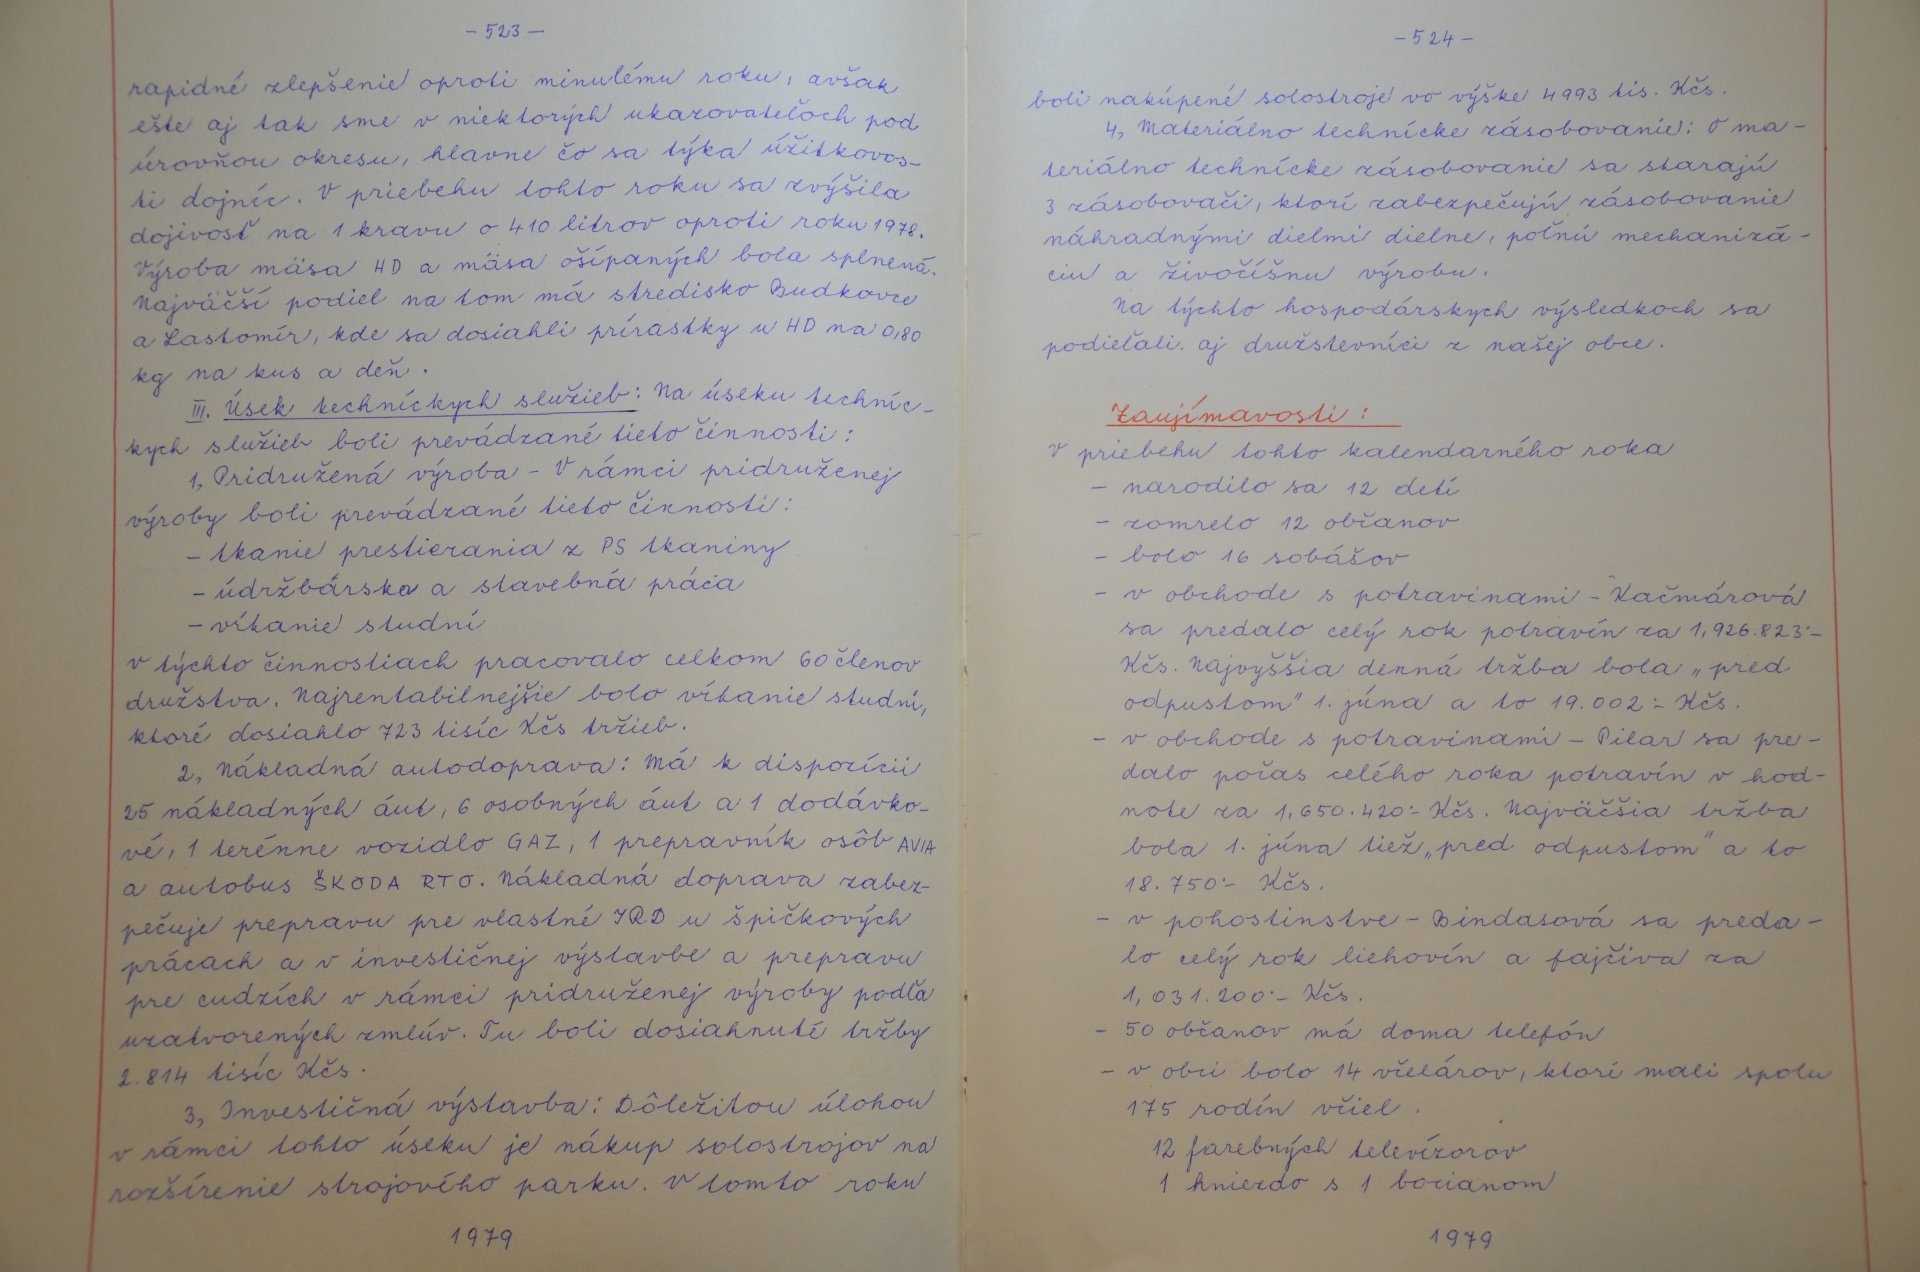 - 523 -
rapidné zlepšenie oproti minulému roku, avšak
ešte aj tak sme v niektorých ukazovateľoch pod
úrovňou okresu, hlavne čo sa týka úžitkovos-
ti dojníc. V priebehu tohto roku sa zvýšila
dojivosť na 1 kravu o 410 litrov oproti roku 1978.
Výroba mäsa HD a mäsa ošípaných bola splnená.
Najväčší podiel na tom má stredisko Budkovce
a Lastomír, kde sa dosiahli prírastky u HD na 0,80
kg na kus a deň.
III. Úsek techníckych služieb: Na úseku techníc-
kych služieb boli prevádzané tieto činnosti:
1, Pridružená výroba - V rámci pridruženej
výroby boli prevádzané tieto činnosti:
- tkanie prestierania z PS tkaniny
- údržbárska a stavebná práca
- vŕtanie studní
v týchto činnostiach pracovalo celkom 60 členov
družstva. Najrentabilnejšie bolo vŕtanie studní,
ktoré dosiahlo 723 tisíc Kčs tržieb.
2, Nákladná autodoprava: Má k dispozícii
25 nákladných áut, 6 osobných áut a 1 dodávko-
vé, 1 terénne vozidlo GAZ, 1 prepravník osôb AVIA
a autobus ŠKODA RTO. Nákladná doprava zabez-
pečuje prepravu pre vlastné JRD u špičkových
prácach a v investičnej výstavbe a prepravu
pre cudzích v rámci pridruženej výroby podľa
uzatvorených zmlúv. Tu boli dosiahnuté tržby
2.814 tisíc Kčs.
3, Investičná výstavba: Dôležitou úlohou
v rámci tohto úseku je nákup solostrojov na
rozšírenie strojového parku. V tomto roku
1979
- 524 -
boli nakúpené solostroje vo výške 4993 tis. Kčs.
4, Materiálno technícke zásobovanie: O ma-
teriálno technícke zásobovanie sa starajú
3 zásobovači, ktorí zabezpečujú zásobovanie
náhradnými dielmi dielne, poľnú mechanizá-
ciu a živočíšnu výrobu.
Na týchto hospodárskych výsledkoch sa
podieľali aj družstevníci z našej obce.
Zaujímavosti:
V priebehu tohto kalendarného roka
- narodilo sa 12 detí
- zomrelo 12 občanov
- bolo 16 sobášov
- v obchode s potravinami - Kačmárová
sa predalo celý rok potravín za 1,926.823.-
Kčs. Najvyššia denná tržba bola „pred
odpustom" 1. júna a to 19.002.- Kčs.
- v obchode s potravinami - Pilar sa pre-
dalo počas celého roka potravín v hod-
note za 1,650.420.- Kčs. Najväčšia tržba
bola 1. júna tiež „pred odpustom" a to
18.750.- Kčs.
- v pohostinstve - Bindasová sa preda-
lo celý rok liehovín a fajčiva za
1,031.200.- Kčs.
- 50 občanov má doma telefón
- v obci bolo 14 včelárov, ktorí mali spolu
175 rodín včiel.
12 farebných televízorov
1 hniezdo s 1 bocianom
1979